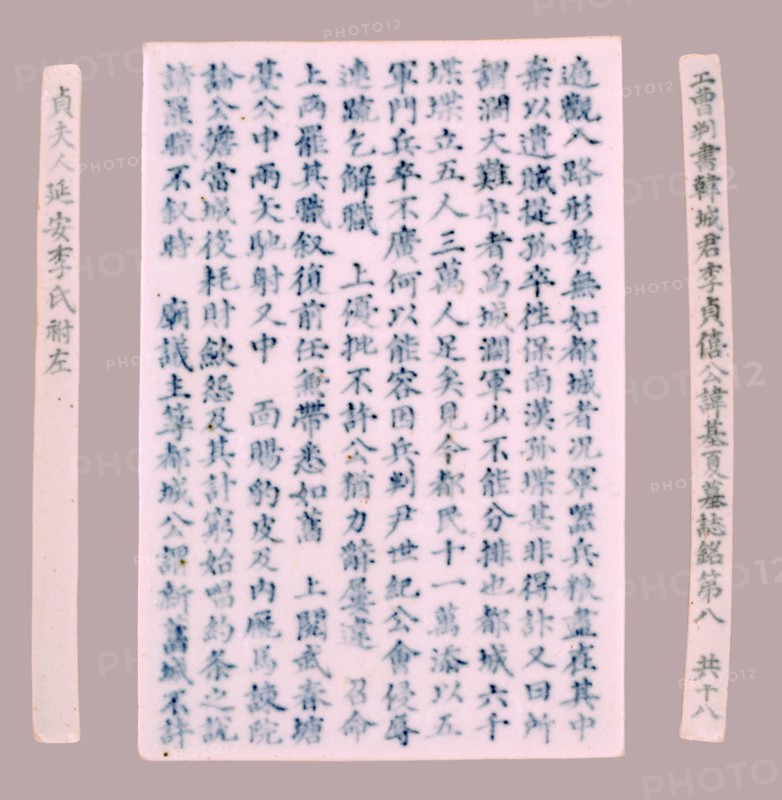 工曹判書韓城君李貞僖公諱基夏墓誌銘第八 共十八
遍觀八路形勢無如都城者況軍器兵粮盡在其中
棄以遺賊從孫卒徃保南漢孫堞甚非得計又曰所
謂濶大難守者爲城濶軍少不能分排也都城六千
堞堞立五人三萬人足矣見今都民十一萬添以五
軍門兵卒不廣何以能容因兵判尹世紀公會侵辱
連疏乞解職 上優批不許公猶力辭屢違 召命
上兩罷其職叙復前任兼帶悉如舊 上閱武春塘
䑓公中兩矢馳射又中 面賜豹皮及內廐馬諫院
論公嘗當城役耗財歛怨及其計窮始唱約条之說
請罷職不叙時 廟議主築都城公謂新舊城不許
貞夫人延安李氏祔左
PHOTO12